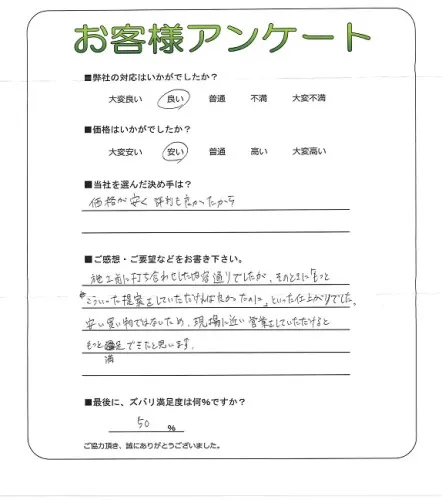 お客様アンケート
■弊社の対応はいかがでしたか？
大変良い 良い 普通 不満 大変不満
■価格はいかがでしたか？
大変安い 安い 普通 高い 大変高い
■当社を選んだ決め手は？
価格が安く 評判も良かったから
■ご感想・ご要望などをお書き下さい。
施工前に打ち合わせした内容通りでしたが、そのときに「もっと
こういった提案をしていただければ良かったのに」といった仕上がりでした。
安い買い物ではないため、現場に近い営業をしていただけると
もっと満足できたと思います。
満
■最後に、ズバリ満足度は何%ですか？
50 %
ご協力頂き、誠にありがとうございました。